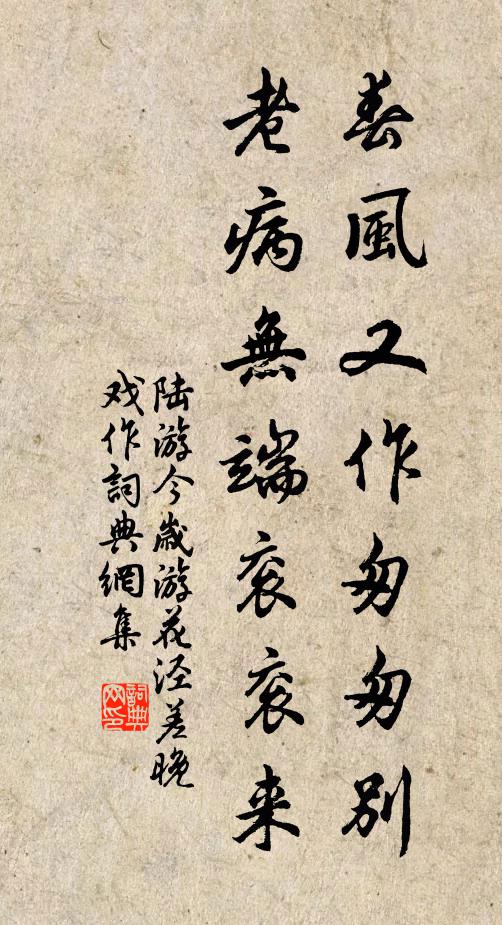 春風又作匆匆別
老病無端衮衮来
陆游今歲游花泾差晚
戏作詞典網集
詞典网印